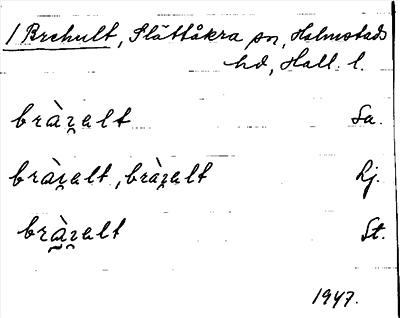 1 Brehult, Slättåkra sn, Halmstads
hd, Hall. l.
bràɿ̯alt Sa.
bràɿ̯alt, bràɿ̯alt Lj.
bràɿ̯alt St.
1947.